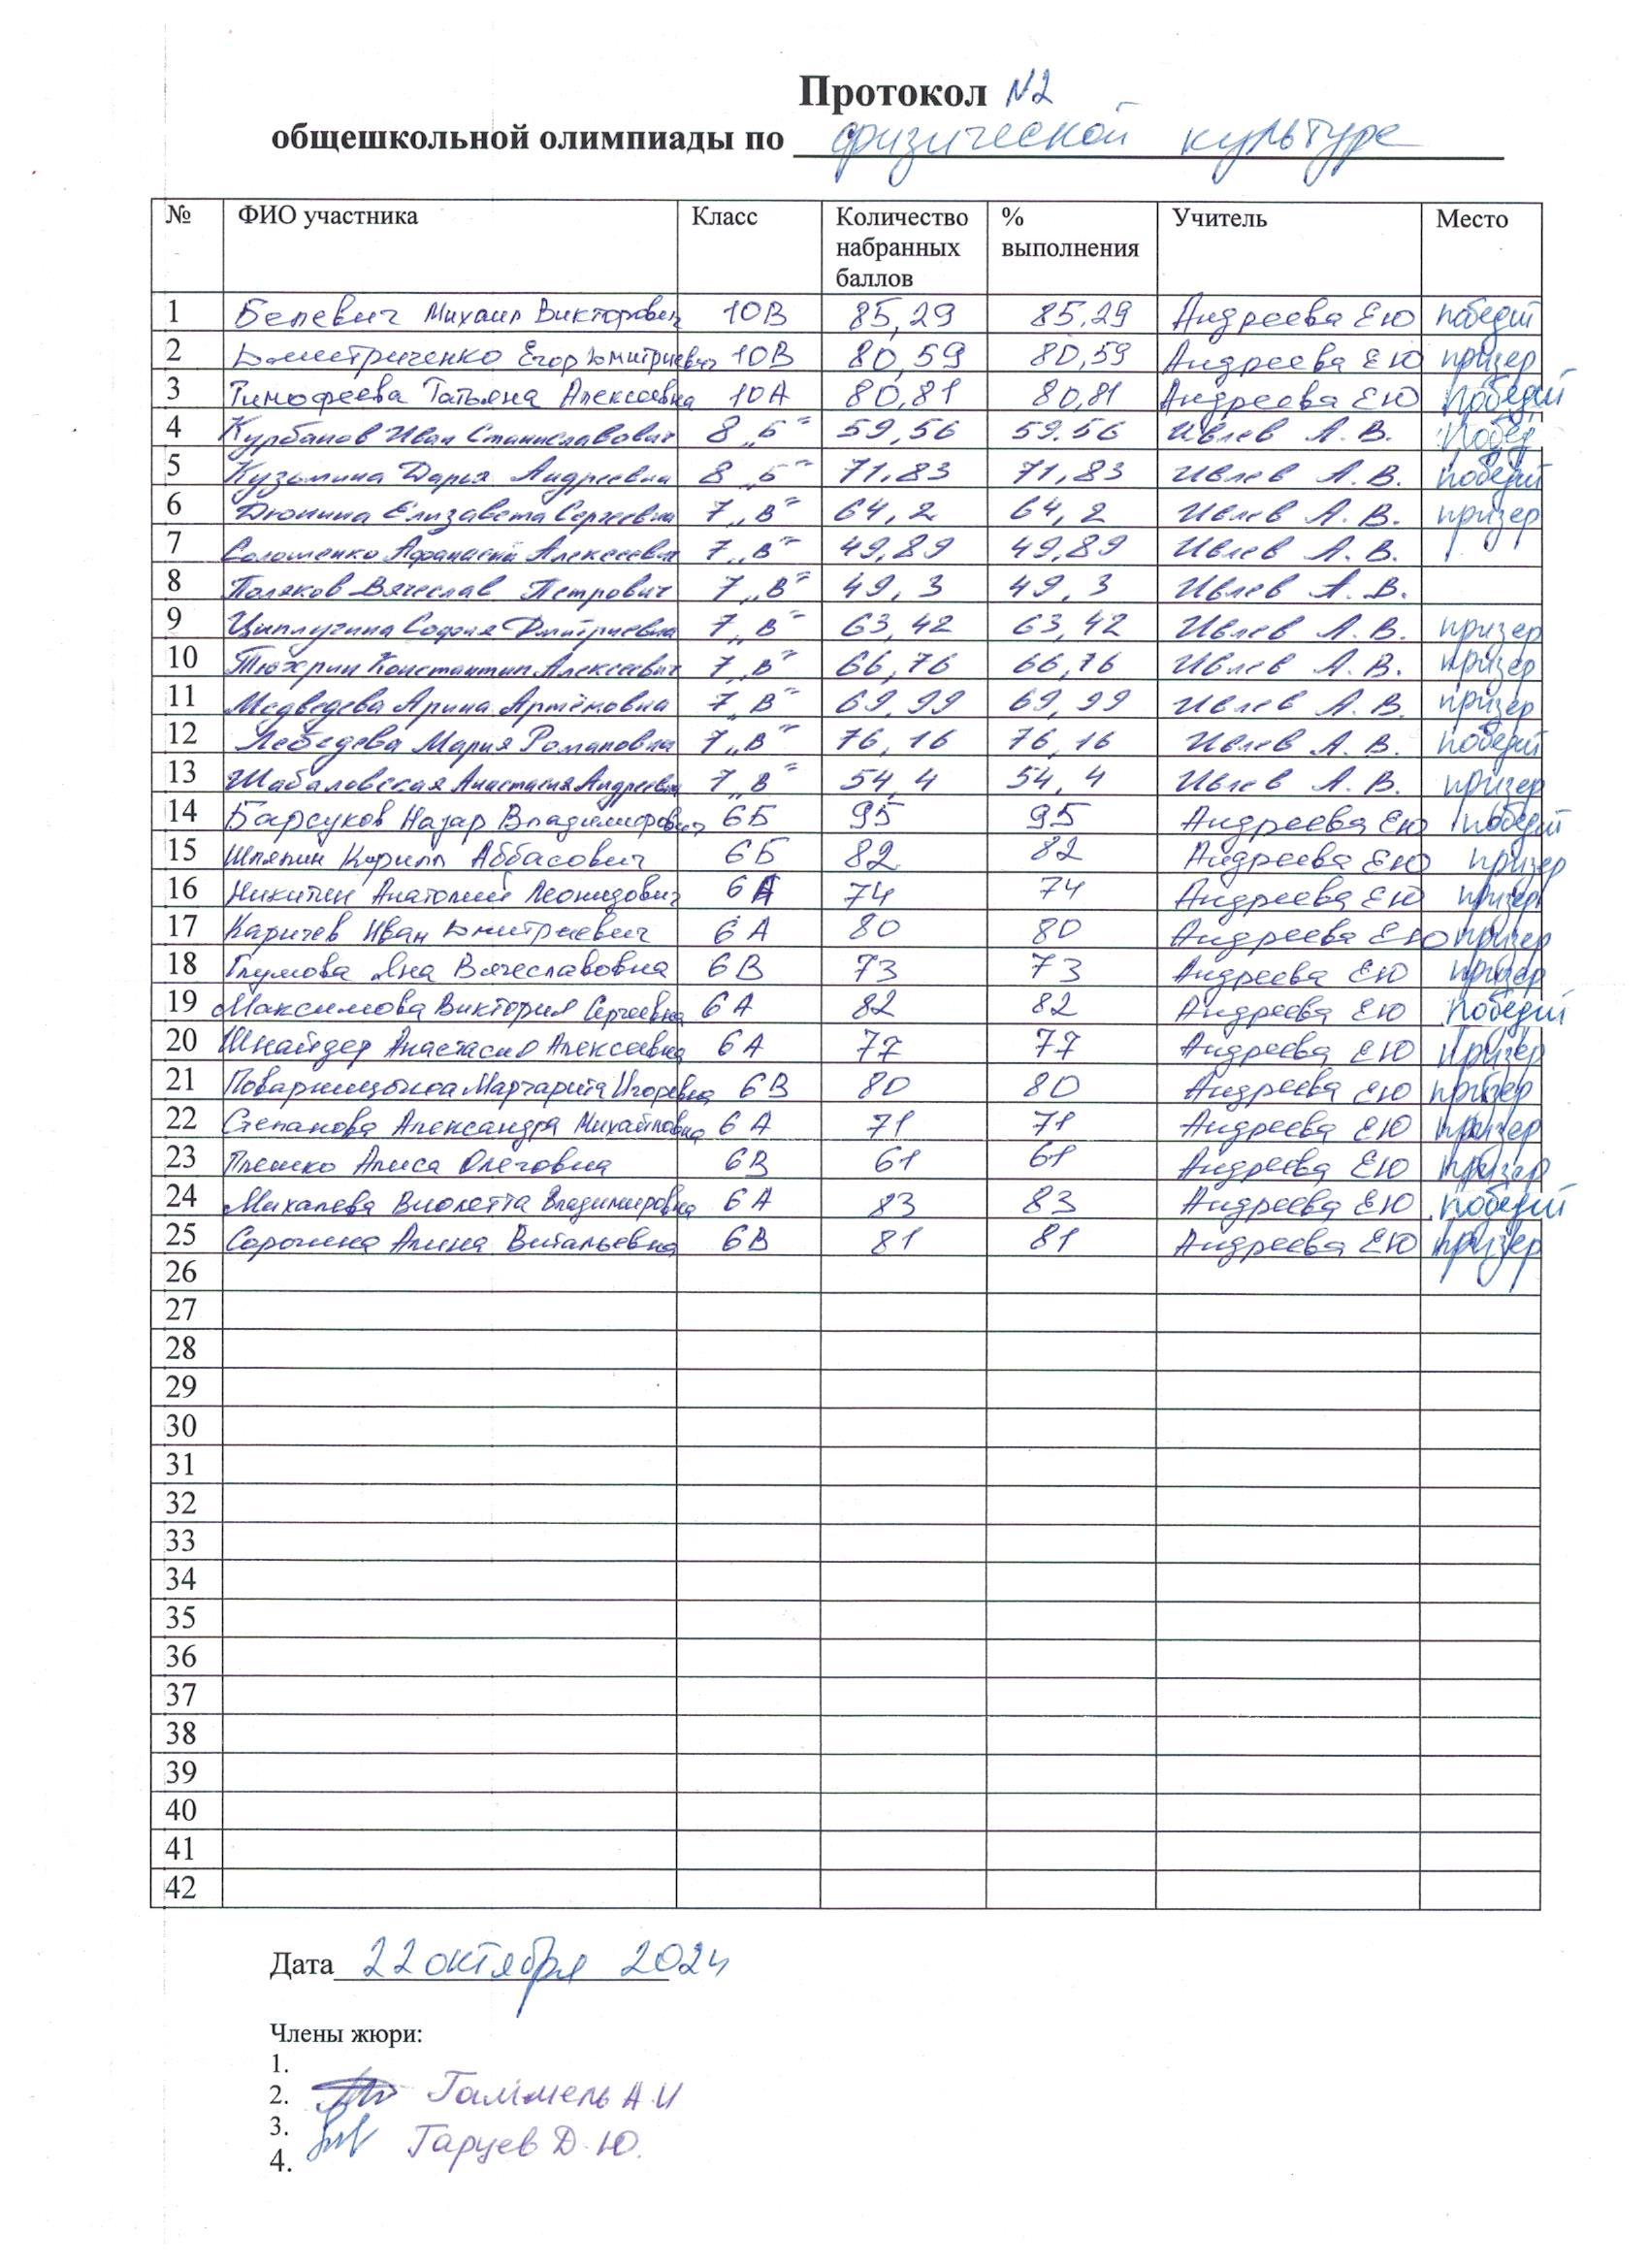 Протокол №2
общешкольной олимпиады по физической культуре
№ ФИО участника Класс Количество набранных баллов % выполнения Учитель Место
1 Белевич Михаил Викторович 10В 85,29 85,29 Андреева ЕЮ победит
2 Дмитриченко Егор Дмитриевич 10В 80,59 80,59 Андреева ЕЮ призер
3 Тимофеева Татьяна Алексеевна 10А 80,81 80,81 Андреева ЕЮ победит
4 Курбанов Иван Станиславович 8 „Б" 59,56 59.56 Ивлев А. В. Побед
5 Кузьмина Дарья Андреевна 8 „Б" 71,83 71,83 Ивлев А. В. победит
6 Дюнина Елизавета Сергеевна 7 „В" 64,2 64,2 Ивлев А. В. призер
7 Соломенко Афанасий Алексеевич 7 „В" 49,89 49,89 Ивлев А. В.
8 Поляков Вячеслав Петрович 7 „В" 49,3 49,3 Ивлев А. В.
9 Циплугина София Дмитриевна 7 „В" 63,42 63,42 Ивлев А. В. призер
10 Тюхрин Константин Алексеевич 7 „В" 66,76 66,76 Ивлев А. В. призер
11 Медведева Арина Артёмовна 7 „В" 69,99 69,99 Ивлев А. В. призер
12 Лебедева Мария Романовна 7 „В" 76,16 76,16 Ивлев А. В. победит
13 Шабаловская Анастасия Андреевна 7 „В" 54,4 54,4 Ивлев А. В. призер
14 Барсуков Назар Владимирович 6Б 95 95 Андреева ЕЮ победит
15 Шляпин Кирилл Аббасович 6Б 82 82 Андреева ЕЮ призер
16 Никитин Анатолий Леонидович 6А 74 74 Андреева ЕЮ призер
17 Каричев Иван Дмитриевич 6А 80 80 Андреева ЕЮ призер
18 Глумова Яна Вячеславовна 6В 73 73 Андреева ЕЮ призер
19 Максимова Виктория Сергеевна 6А 82 82 Андреева ЕЮ победит
20 Шнайдер Анастасия Алексеевна 6А 77 77 Андреева ЕЮ призер
21 Поварницына Маргарита Игоревна 6В 80 80 Андреева ЕЮ призер
22 Степанова Александра Михайловна 6А 71 71 Андреева ЕЮ призер
23 Плешко Алиса Олеговна 6В 61 61 Андреева ЕЮ призер
24 Михалева Виолетта Владимировна 6А 83 83 Андреева ЕЮ победит
25 Сорокина Алина Витальевна 6В 81 81 Андреева ЕЮ призер
26
27
28
29
30
31
32
33
34
35
36
37
38
39
40
41
42
Дата 22 октября 2024
Члены жюри:
1.
2. Гаммель А.И
3. Гарцев Д.Ю.
4.